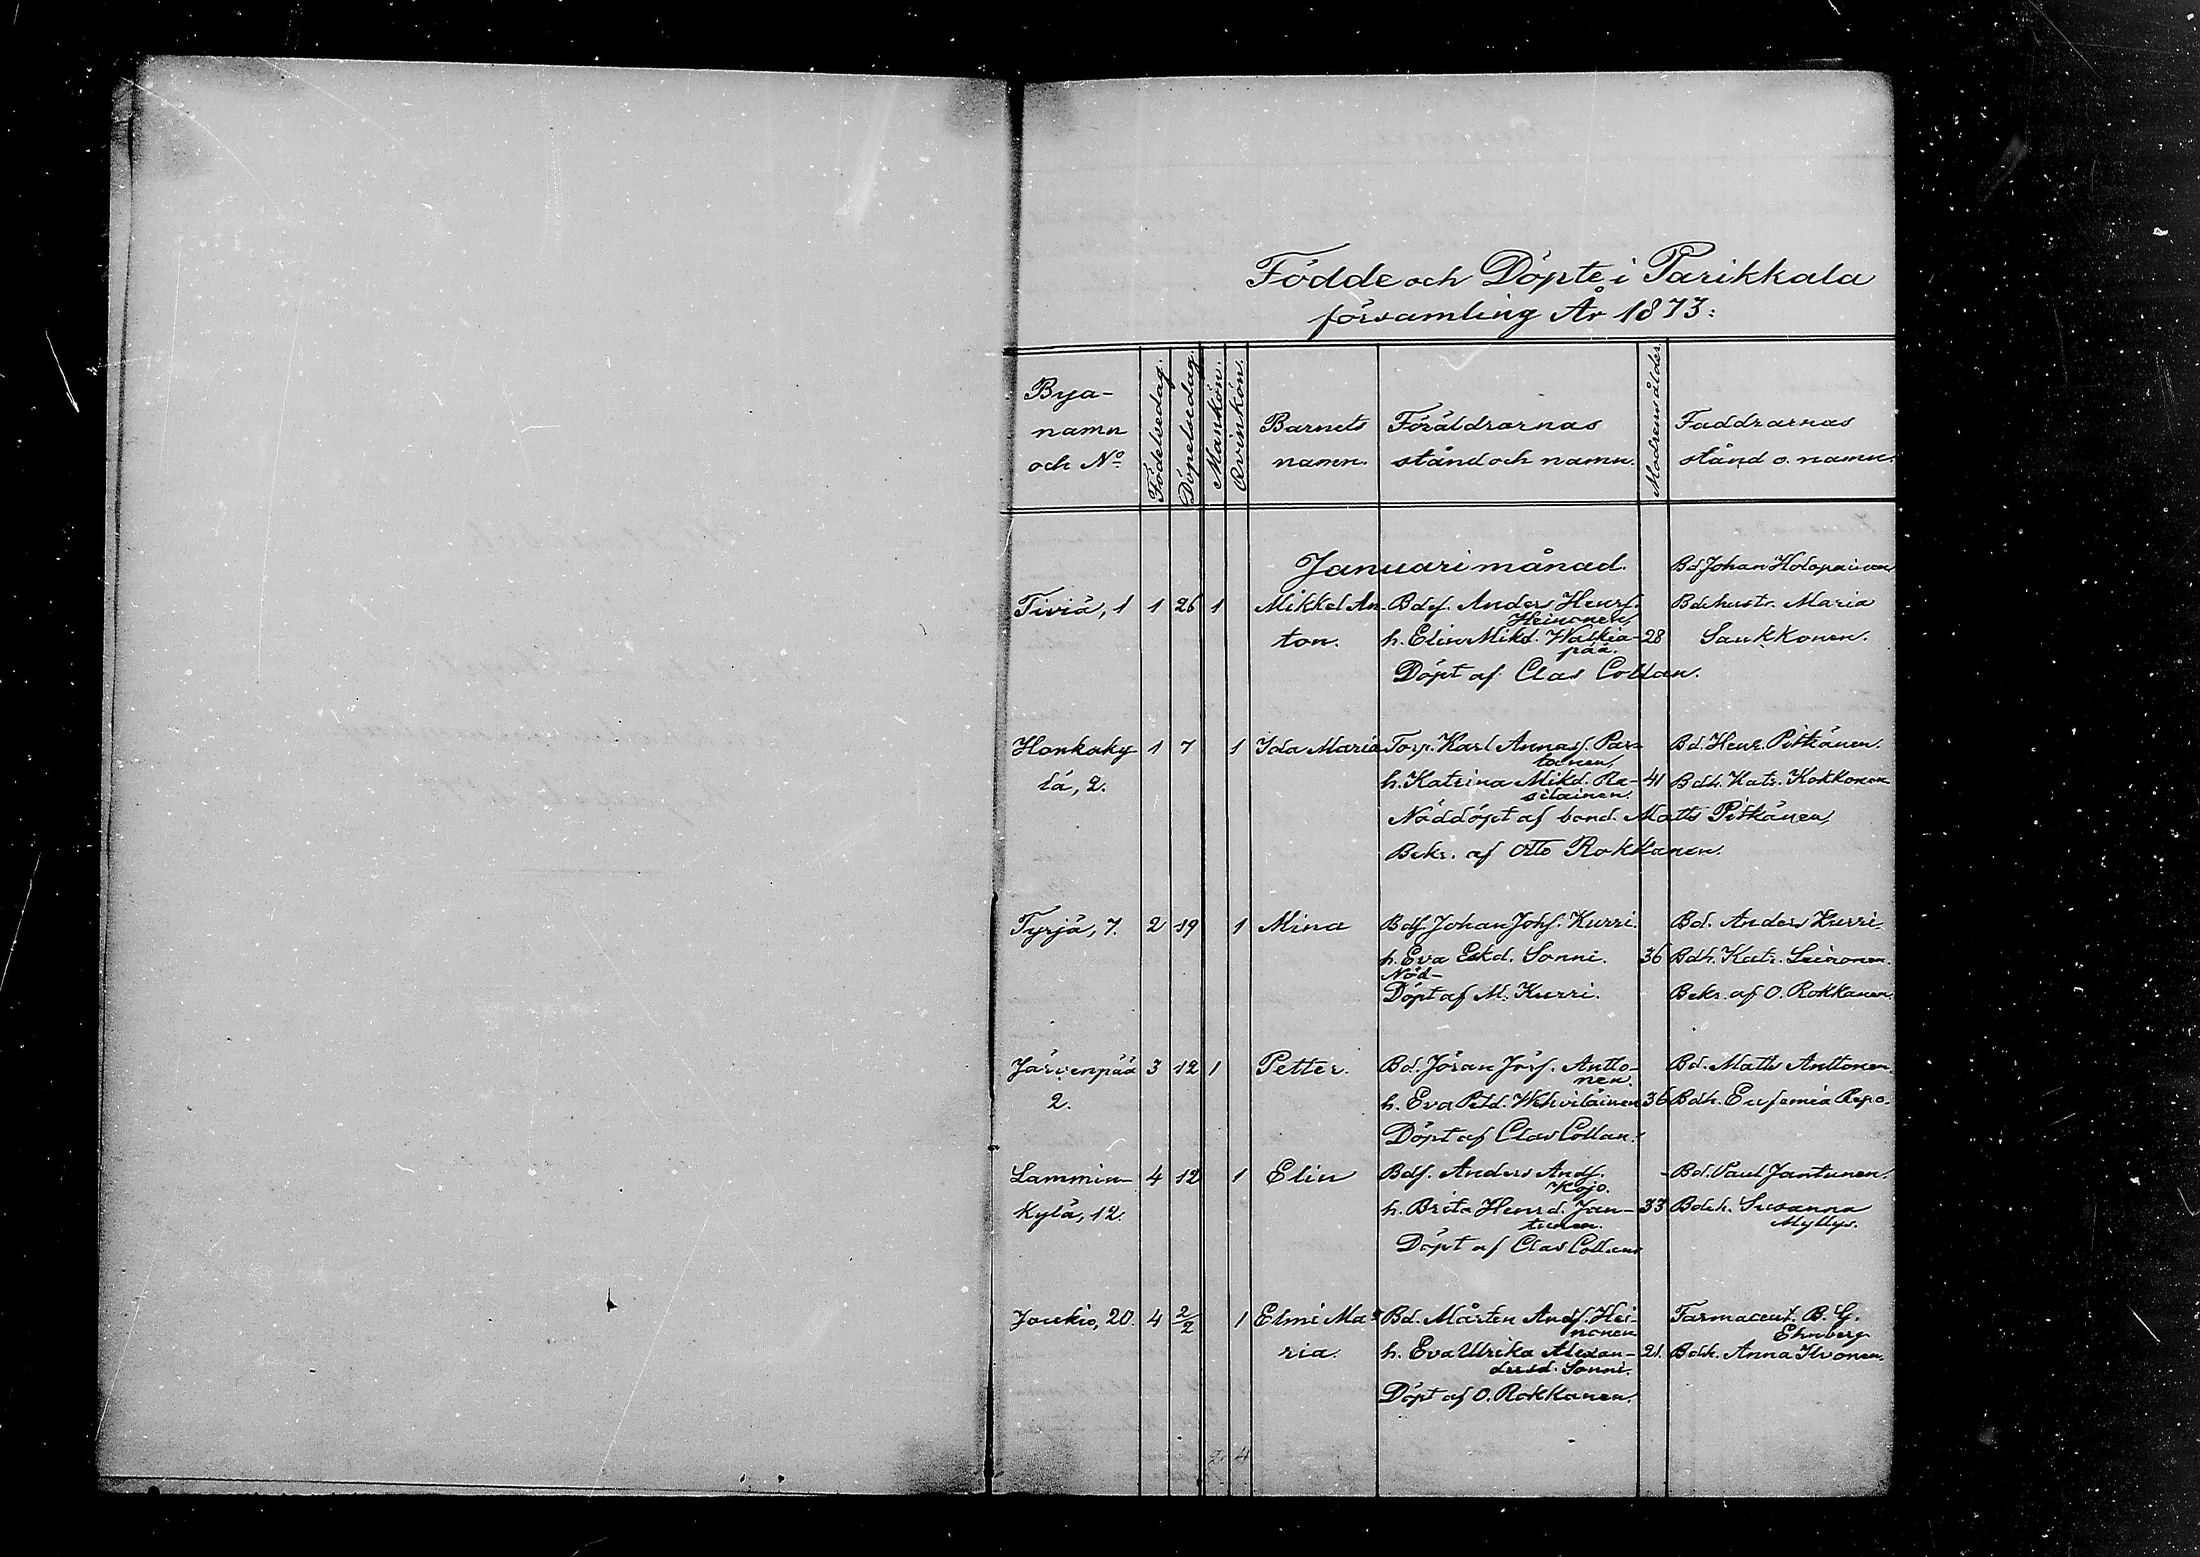 Födde och Döpte i Parikkala
församling År 1873:
Bya-
namn
och No
Födelsedag.
Döpelsedag.
Mankön.
Qvinkön.
Barnets
namn.
Föräldrarnas
stånd och namn.
Modrens ålder.
Faddrarnas
stånd o. namn.
Januari månad. Bd Johan Holopainen
Tiviä, 1 1 26 1 Mikkel An- Bdef. Anders Henrs. Bdehustr. Maria
Heinonen,
ton. h. Elin Mikd. Walkia- 28 Saukkonen.
pää.
Döpt af Clas Collan.
Honkaky 1 7 1 Ida Maria Torp. Karl Annasf. Par- Bd. Henr. Pitkänen.
tanen,
lä, 2. h. Katrina Mikd. Ra- 41 Bdh. Katr. Kokkonen
silainen.
Nöddöpt af bond. Matts Pitkänen,
Bekr. af Otto Rokkanen.
Tyrjä, 7. 2 19 1 Mina Bdf. Johan Johf. Kurri. Bd. Anders Kurri
h. Eva Eskd. Sonni. 36 Bdh. Katr. Leinonen.
Nöd-
Döpt af M. Kurri. Bekr. af O. Rokkanen.
Järvenpää 3 12 1 Petter. Bd. Jöran Jörf. Antto- Bd. Matts Anttonen.
nen.
2. h. Eva Petd. Wehviläinen 36 Bdh. Eufemia Repo.
Döpt af Clas Collan.
Lammin- 4 12 1 Elin Bdf. Anders Andf. Bd. Paul Jantunen.
Kojo.
kylä, 12. h. Brita Henrd. Jan- 33 Bdeh. Susanna
tunen. Myllys.
Döpt af Clas Collan
Joukio, 20. 4 2/2 1 Elmi Ma- Bd. Mårten Andf. Hei- Farmaceut. B. G.
nonen Ehnberg
ria. h. Eva Ulrika Alexan- 21. Bdh. Anna Ilvonen.
dersd. Sonni.
Döpt af O. Rokkanen.
2 4